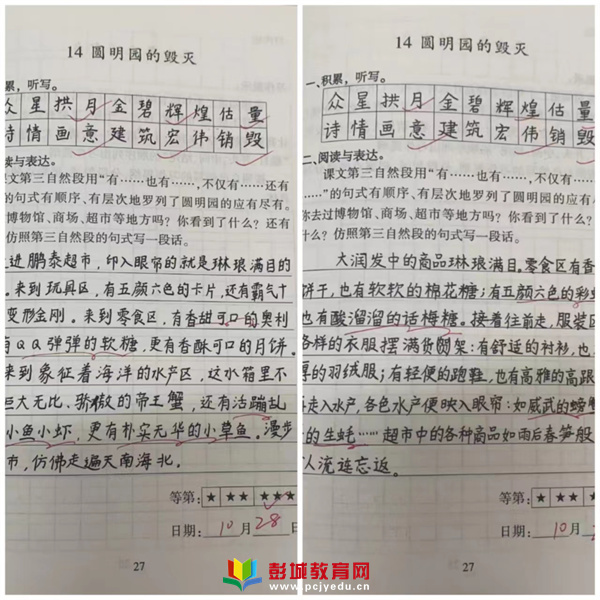 14 圆明园的毁灭
累，听写。
众星拱月金碧辉煌估量
诗情画意建筑宏伟销毁
读与表达。
课文第三自然段用“有……也有……，不仅有……还有
的句式有顺序、有层次地罗列了圆明园的应有尽有。
过博物馆、商场、超市等地方吗？你看到了什么？还有
仿照第三自然段的句式写一段话。
进鹏泰超市，印入眼帘的就是琳琅满目的
。来到玩具区，有五颜六色的卡片，还有霸气十
变形金刚。来到零食区，有香甜可口的奥利
有QQ弹弹的软糖，更有香酥可口的月饼。
来到象征着海洋的水产区，这水箱里不
巨大无比、骄傲的帝王蟹，还有活蹦乱
小鱼小虾，更有朴实无华的小草鱼。漫步
市，仿佛走遍天南海北。
等第：★ ★★ ★★★
日期：10月28日
27
14 圆明园的毁灭
一、积累，听写。
众星拱月金碧辉煌估量
诗情画意建筑宏伟销毁
二、阅读与表达。
课文第三自然段用“有……也有……，不仅有……还有
……”的句式有顺序、有层次地罗列了圆明园的应有尽有。
你去过博物馆、商场、超市等地方吗？你看到了什么？还有
什么？仿照第三自然段的句式写一段话。
大润发中的商品琳琅满目。零食区有香
饼干，也有软软的棉花糖；有五颜六色的彩虹
也有酸溜溜的话梅糖。接着往前走，服装区
各样的衣服摆满货架：有舒适的衬衫，也
厚的羽绒服；有轻便的跑鞋，也有高雅的高跟
再走入水产，各色水产便映入眼帘：如威武的螃蟹
的生蚝……超市中的各种商品如雨后春笋般
人流连忘返。
等第：★ ★★ ★
日期：10月
27
彭城教育网
www.pcjyedu.cn